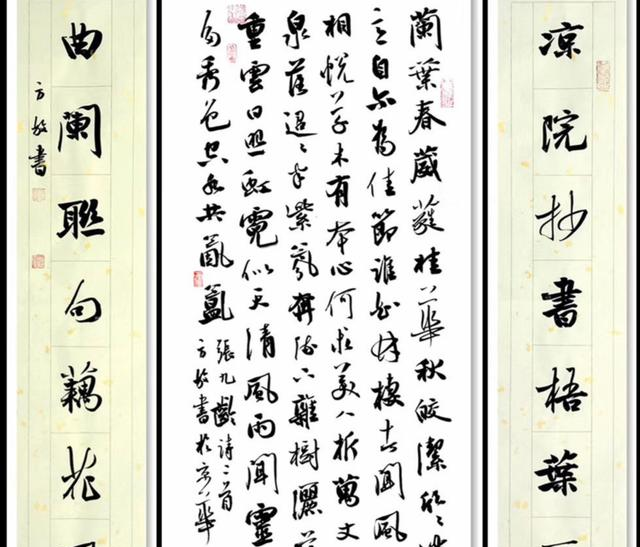 涼院抄書梧葉
蘭葉春葳蕤桂華秋皎潔欣〻
意自尔為佳節誰知林棲者聞風
相悦草木有本心何求美人折萬丈
泉落迢〻半紫氛奔流下雜樹灑落
重雲日照虹霓似天清風雨聞靈
多秀色空水共氤氳
張九齡詩二首
方書於京華
曲闌聯句藕花
方書